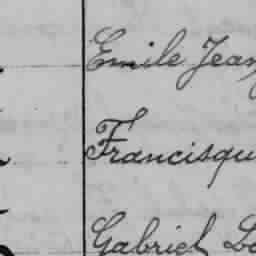 Emile Jean
Francisqu
Gabriel